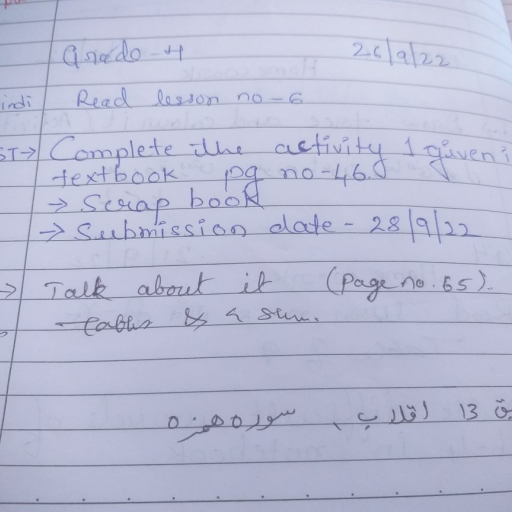 Grade-4 26/9/22
indi Read lesson no-6
ST→ Complete the activity 1 given
textbook pg no-46.
→ Scrap book
→ Submission date - 28/9/22
→ Talk about it (page no.65).
سورہ ھمزہ